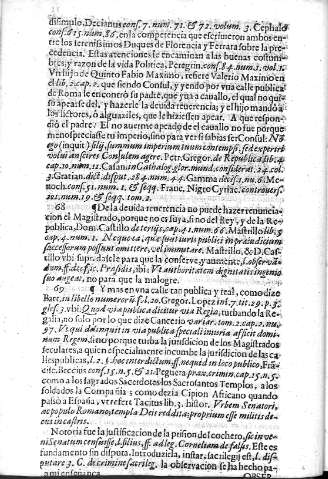 disimulo. Decianus conf. 7. num. 71. & 72. volum. 3. Cephalo
conf. 815. num. 86. en la competencia que tuuieron ambos en-
tre los serenissimos Duques de Florencia y Ferrara sobre la pre-
cedencia. Estas atenciones se encaminan a las buenas costum-
bres, y razon de la vida Politica, Peregrin. conf. 84. num. 1. vol. 5.
Vn hijo de Quinto Fabio Maximo, refiere Valerio Maximo en
el lib. 2. cap. 2. que siendo Consul, y yendo por vna calle publica
de Roma le encontrò su padre, que yua a cauallo, el qual no qui-
so apearse del, y hazerle la deuida reuerencia; y el hijo mandò a
los lictores, ò alguaziles, que le hiziessen apear. A que respon-
diò el padre: El no auerme apeado de el cauallo no fue porque
menospreciasse tu imperio, sino para ver si sabias ser Consul: No
ego (inquit) fili, summum imperium tuum contempsi, sed experiri
volui an scires Consulem agere. Petr. Gregor. de Republica lib. 4.
cap. 10. num. 11. Casan. in Cathalog. glor. mund. considerat. 24. col.
3. Gratian. dict. disput. 284. num. 44. Gamma decis. 2. nu. 6. Me-
noch. conf. 51. num. 1. & seqq. Frauc, Nigro Cyriac. controuers.
201. num. 19. & seqq. tom. 2.
68 ¶ De la deuida reuerencia no puede hazer renuncia-
cion el Magistrado, porque no es suya, sino del Rey, y de la Re-
publica, Dom. Castillo de tertijs, cap. 41. num. 66. Mastrillo lib. 5.
cap. 4. num. 1. Nequeea, quæ sunt iuris publici in præiudicium
successorum possunt omittere, vel inmutare. Mastrillo, & D. Cas-
tillo vbi supr. dasele para que la conserve, y aumente, l. obseruan-
dum, ff. de offic. Præsidis, ibi: Vt authoritatem dignitatis ingenio
suo augeat, no para que la malogre.
69 ¶ Y mas en vna calle tan publica y real, como dize
Baer, su libello numerorum f. l. 20. Gregor. Lopez inl. 7. tit. 29. p. 3.
gloss. 3. vbi: Quod via publica dicitur via Regia, turbando la Re-
galia, no solo por lo que dize Cancerio variar. tom. 2. cap. 2. nu.
97. Vt qui delinquit in via publica speciali iniuria afficit domi-
num Regem. Sino porque turba la jurisdicion de los Magistrados
seculares, a quien especialmente incumbe la jurisdicion de las ca-
lles publicas, l. 2. §. hoc interdictum, ff. nequid in loco publico, Fra-
disc. Beceius conf. 15. n. 5. & 21. Peguera. prax. crimin. cap. 15. n. 5.
como a los sagrados Sacerdotes los Sacrosantos Templos, a los
soldados la Compañia: como dezia Cipion Africano quando
passò a España, y refiere Tacitus lib. 3. histor. Vrbem Senatori,
ac populo Romano, templa Deis reddita: proprium esse militis de-
cus in castris.
Notoria fue la justificacion de la prision del cochero, sic inue-
ni Senatum censuisse, l. silius, ff. ad leg. Corneliam de falsis. Este es
fundamento sin disputa. Introduzirla, instar. sacrilegij est, l. dis-
putare 3. C. de crimine sacrileg. la observacion se ha hecho pa-
ra mi enseñança.
OBSER-